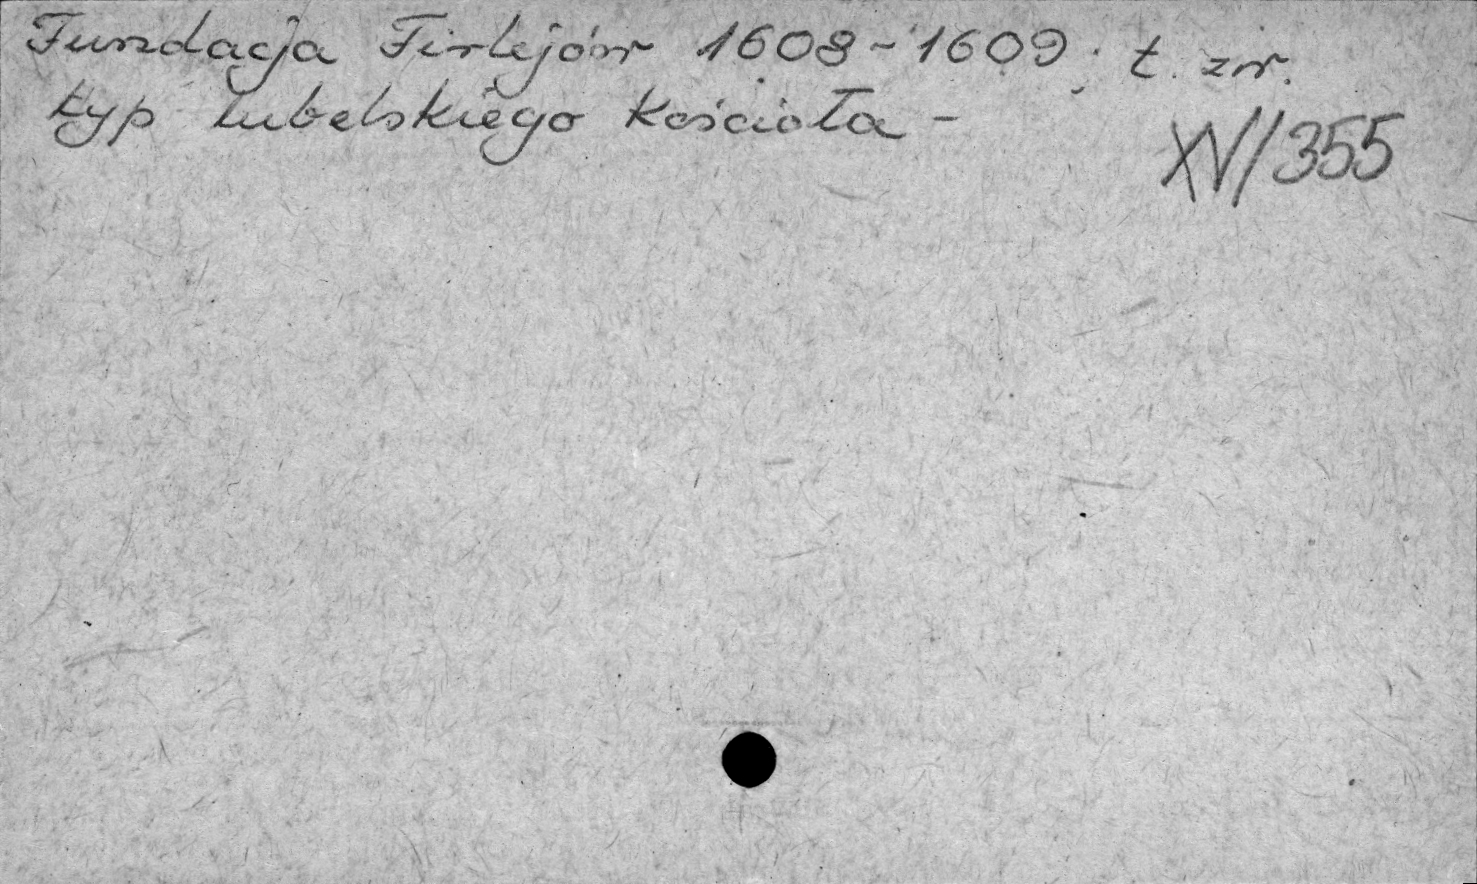 Fundacja Firlejów 1608-1609; t. zw.
typ lubelskiego kościoła -
XV/355